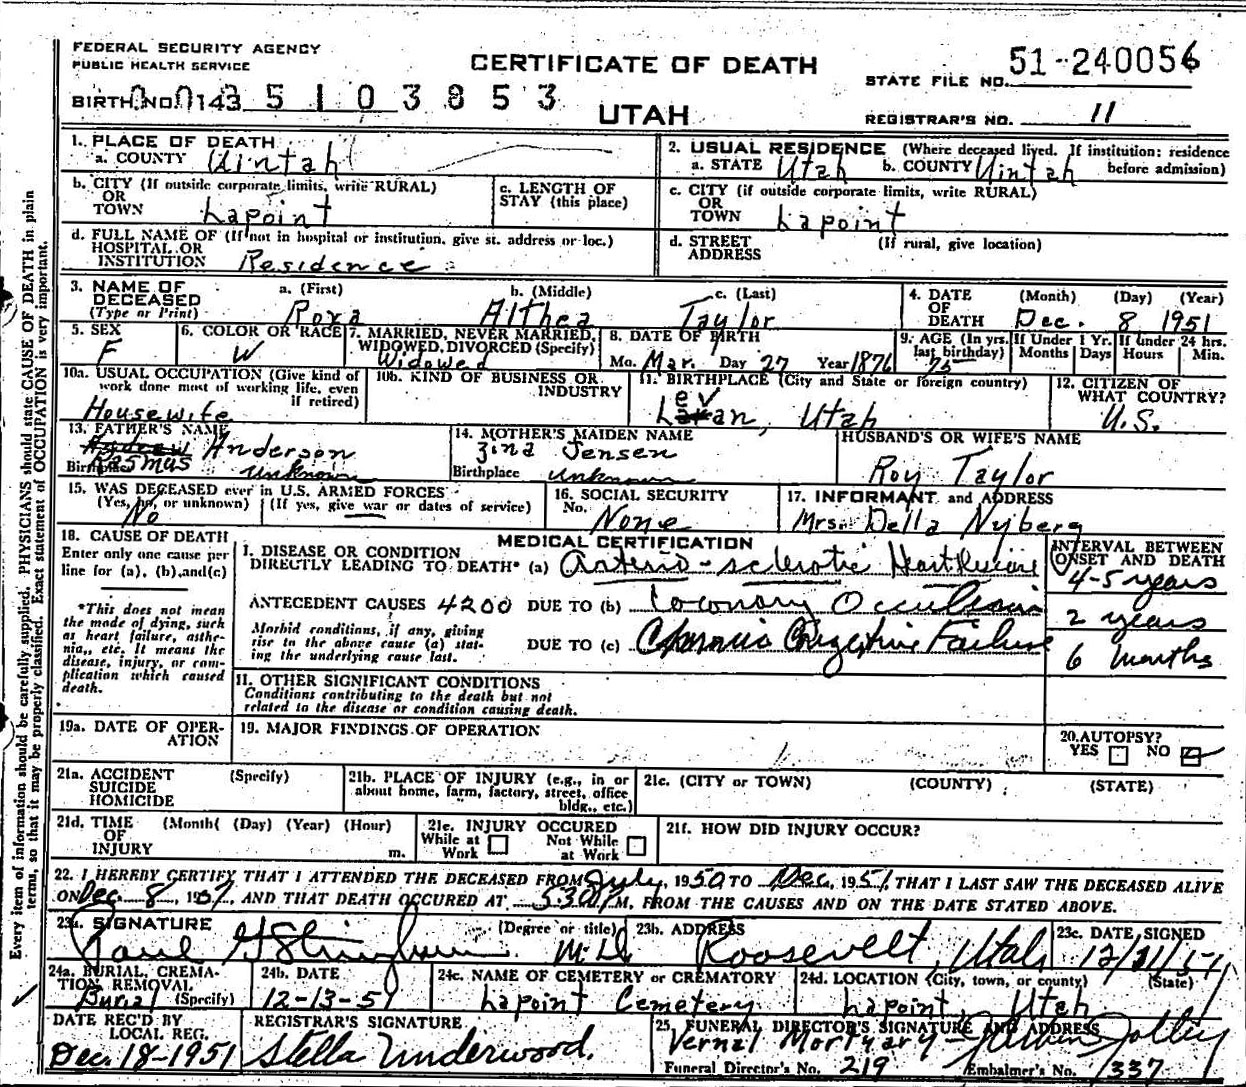 FEDERAL SECURITY AGENCY
PUBLIC HEALTH SERVICE
CERTIFICATE OF DEATH
UTAH
STATE FILE NO. 51-240056
BIRTH NO. 0143 5103853
REGISTRAR'S NO. 11
Every item of information should be carefully supplied. PHYSICIANS should state CAUSE OF DEATH in plain
terms, so that it may be properly classified. Exact statement of OCCUPATION is very important.
1. PLACE OF DEATH
a. COUNTY Uintah
2. USUAL RESIDENCE (Where deceased lived. If institution: residence
a. STATE Utah b. COUNTY Uintah before admission)
b. CITY (If outside corporate limits, write RURAL)
OR
TOWN Lapoint
c. LENGTH OF
STAY (this place)
c. CITY (if outside corporate limits, write RURAL)
OR
TOWN Lapoint
d. FULL NAME OF (If not in hospital or institution, give st. address or loc.)
HOSPITAL OR
INSTITUTION Residence
d. STREET (If rural, give location)
ADDRESS
3. NAME OF DECEASED
(Type or Print)
a. (First) b. (Middle) c. (Last)
Roxa Althea Taylor
4. DATE OF DEATH (Month) (Day) (Year)
Dec. 8 1951
5. SEX
F
6. COLOR OR RACE
W
7. MARRIED, NEVER MARRIED,
WIDOWED, DIVORCED (Specify)
Widowed
8. DATE OF BIRTH
Mo. Mar. Day 27 Year 1876
9. AGE (In yrs. last birthday)
75
If Under 1 Yr. Months Days
If under 24 hrs. Hours Min.
10a. USUAL OCCUPATION (Give kind of
work done most of working life, even
if retired)
Housewife
10b. KIND OF BUSINESS OR
INDUSTRY
11. BIRTHPLACE (City and State or foreign country)
Levan, Utah
12. CITIZEN OF
WHAT COUNTRY?
U.S.
13. FATHER'S NAME
Andrew Anderson
Rasmus
Birthplace unknown
14. MOTHER'S MAIDEN NAME
Zina Jensen
Birthplace unknown
HUSBAND'S OR WIFE'S NAME
Roy Taylor
15. WAS DECEASED ever in U.S. ARMED FORCES
(Yes, no, or unknown) (If yes, give war or dates of service)
No
16. SOCIAL SECURITY
No. None
17. INFORMANT and ADDRESS
Mrs. Della Nyberg
18. CAUSE OF DEATH
Enter only one cause per
line for (a), (b), and (c)
*This does not mean
the mode of dying, such
as heart failure, asthe-
nia, etc. It means the
disease, injury, or com-
plication which caused
death.
MEDICAL CERTIFICATION
INTERVAL BETWEEN
ONSET AND DEATH
I. DISEASE OR CONDITION
DIRECTLY LEADING TO DEATH* (a) Arterio-sclerotic Heart
4-5 years
ANTECEDENT CAUSES 4200 DUE TO (b) Coronary Occulsion
2 years
Morbid conditions, if any, giving
rise to the above cause (a) stat-
ing the underlying cause last.
DUE TO (c) Chronic Congestive Failure
6 months
11. OTHER SIGNIFICANT CONDITIONS
Conditions contributing to the death but not
related to the disease or condition causing death.
19a. DATE OF OPER-
ATION
19. MAJOR FINDINGS OF OPERATION
20. AUTOPSY?
YES NO
21a. ACCIDENT (Specify)
SUICIDE
HOMICIDE
21b. PLACE OF INJURY (e.g., in or
about home, farm, factory, street, office
bldg., etc.)
21c. (CITY or TOWN) (COUNTY) (STATE)
21d. TIME (Month( (Day) (Year) (Hour)
OF
INJURY m.
21e. INJURY OCCURED
While at Work Not While at Work
21f. HOW DID INJURY OCCUR?
22. I HEREBY CERTIFY THAT I ATTENDED THE DECEASED FROM July, 1950 TO Dec, 1951, THAT I LAST SAW THE DECEASED ALIVE
ON Dec. 8, 1951, AND THAT DEATH OCCURED AT 5:30 P M, FROM THE CAUSES AND ON THE DATE STATED ABOVE.
23a. SIGNATURE (Degree or title)
Paul G Stringham M.D.
23b. ADDRESS
Roosevelt, Utah
23c. DATE SIGNED
12/21/51
24a. BURIAL, CREMA-
TION REMOVAL
Burial (Specify)
24b. DATE
12-13-51
24c. NAME OF CEMETERY or CREMATORY
Lapoint Cemetery
24d. LOCATION (City, town, or county) (State)
Lapoint, Utah
DATE REC'D BY
LOCAL REG.
Dec. 18-1951
REGISTRAR'S SIGNATURE
Stella Underwood.
25. FUNERAL DIRECTOR'S SIGNATURE AND ADDRESS
Vernal Mortuary Jolley
Funeral Director's No. 219 Embalmer's No. 337